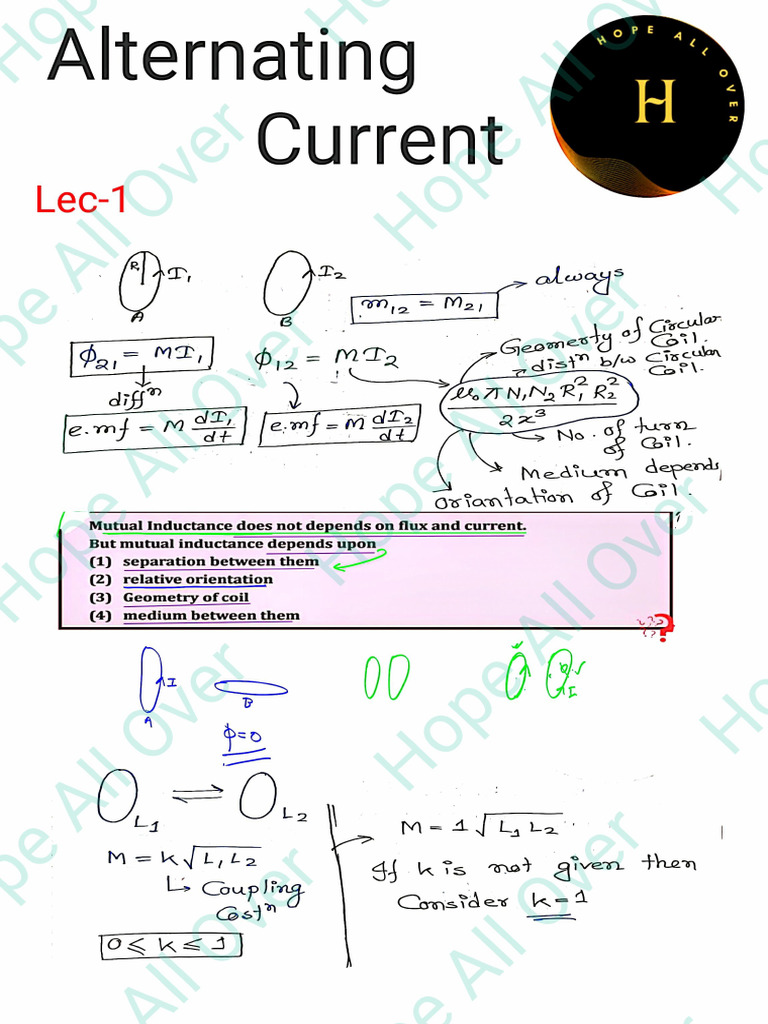 Alternating
Current
HOPE ALL OVER
H
Lec-1
R
I₁
A
I₂
B
m₁₂ = M₂₁
always
ϕ₂₁ = MI₁
ϕ₁₂ = MI₂
diffⁿ
e.mf = M dI₁/dt
e.mf = M dI₂/dt
Geomerty of Circular
Coil.
distⁿ b/w Circular
Coil.
μ₀ π N₁N₂ R₁² R₂²
2x³
No. of turn
of Coil.
Medium depends
oriantation of Coil.
Mutual Inductance does not depends on flux and current.
But mutual inductance depends upon
(1) separation between them
(2) relative orientation
(3) Geometry of coil
(4) medium between them
I
A
B
I
ϕ=0
L₁
L₂
M = K√L₁L₂
↳ Coupling
Costⁿ
0 ≤ K ≤ 1
M = 1√L₁L₂
If K is not given then
Consider K=1
Hope All Over